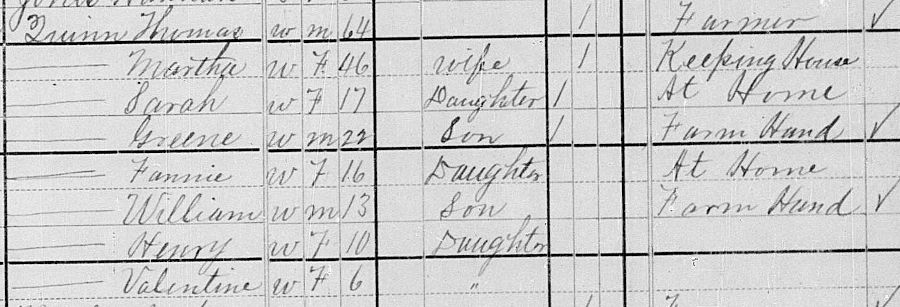 Quinn Thomas w m 64 1 Farmer ✓
Martha w F 46 wife 1 Keeping House
Sarah w F 17 Daughter 1 At Home
Greene w m 22 Son 1 Farm Hand ✓
Fannie w F 16 Daughter At Home
William w m 13 Son Farm Hand ✓
Henry w F 10 Daughter
Valentine w F 6 "